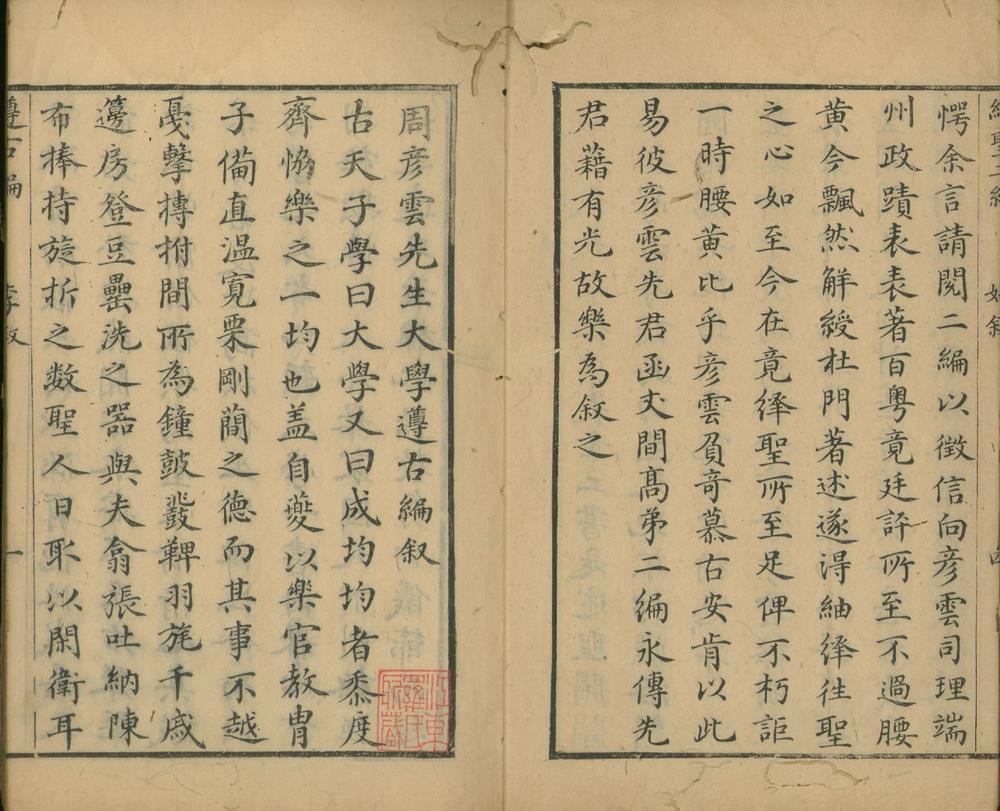 愕余言請閱二編以徵信向彥雲司理端
州政蹟表表著百粵竟廷評所至不過腰
黃今飄然解綬杜門著述遂得紬繹往聖
之心如至今在竟繹聖所至足俾不朽詎
一時腰黃比乎彥雲負竒慕古安肯以此
易彼彥雲先君函丈間髙弟二編永傳先
君藉有光故樂為叙之
周彥雲先生大學遵古編叙
古天子學曰大學又曰成均均者黍度
齊恊樂之一均也盖自夔以樂官教胄
子備直温寛栗剛簡之德而其事不越
戞擊搏拊間所為鐘鼓鼗鞞羽旄干戚
籩房登豆罍洗之器與夫翕張吐納陳
布捧持旋折之数聖人日取以閑衛耳
遵古編
一
江東羅氏所藏